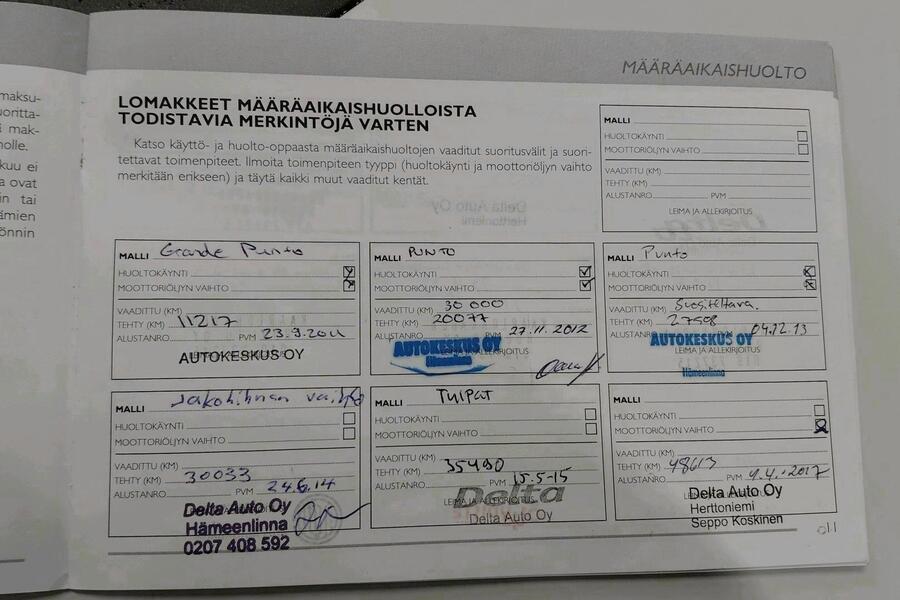 MÄÄRÄAIKAISHUOLTO
maksu-
oritta-
i mak-
nolle.
kuu ei
a ovat
in tai
ämien
önnin
LOMAKKEET MÄÄRÄAIKAISHUOLLOISTA
TODISTAVIA MERKINTÖJÄ VARTEN
Katso käyttö- ja huolto-oppaasta määräaikaishuoltojen vaaditut suoritusvälit ja suori-
tettavat toimenpiteet. Ilmoita toimenpiteen tyyppi (huoltokäynti ja moottoriöljyn vaihto
merkitään erikseen) ja täytä kaikki muut vaaditut kentät.
MALLI
HUOLTOKÄYNTI
MOOTTORIÖLJYN VAIHTO
VAADITTU (KM)
TEHTY (KM)
ALUSTANRO PVM
LEIMA JA ALLEKIRJOITUS
MALLI Grande Punto
HUOLTOKÄYNTI
MOOTTORIÖLJYN VAIHTO
VAADITTU (KM)
TEHTY (KM) 11217
ALUSTANRO PVM 23.9.2011
AUTOKESKUS OY
MALLI PUNTO
HUOLTOKÄYNTI
MOOTTORIÖLJYN VAIHTO
VAADITTU (KM) 30 000
TEHTY (KM) 20077
ALUSTANRO PVM 27.11.2012
AUTOKESKUS OY
LEIMA JA ALLEKIRJOITUS
Hämeenlinna
MALLI Punto
HUOLTOKÄYNTI
MOOTTORIÖLJYN VAIHTO
VAADITTU (KM) Suositeltava.
TEHTY (KM) 27508
ALUSTANRO PVM 04.12.13
AUTOKESKUS OY
LEIMA JA ALLEKIRJOITUS
Hämeenlinna
MALLI Jakohihnan vaihto
HUOLTOKÄYNTI
MOOTTORIÖLJYN VAIHTO
VAADITTU (KM)
TEHTY (KM) 30033
ALUSTANRO PVM 24.6.14
Delta Auto Oy
Hämeenlinna
0207 408 592
MALLI TULPAT
HUOLTOKÄYNTI
MOOTTORIÖLJYN VAIHTO
VAADITTU (KM)
TEHTY (KM) 35490
ALUSTANRO PVM 15.5-15
LEIMA JA ALLEKIRJOITUS
Delta
Delta Auto Oy
MALLI
HUOLTOKÄYNTI
MOOTTORIÖLJYN VAIHTO
VAADITTU (KM)
TEHTY (KM) 48613
ALUSTANRO PVM 4.4.2017
Delta Auto Oy
Herttoniemi
Seppo Koskinen
11